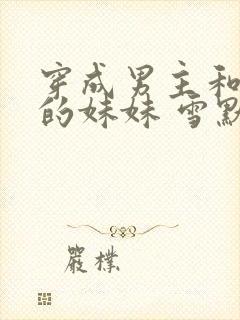 穿成男主和
的妹妹 雪默
嚴樸